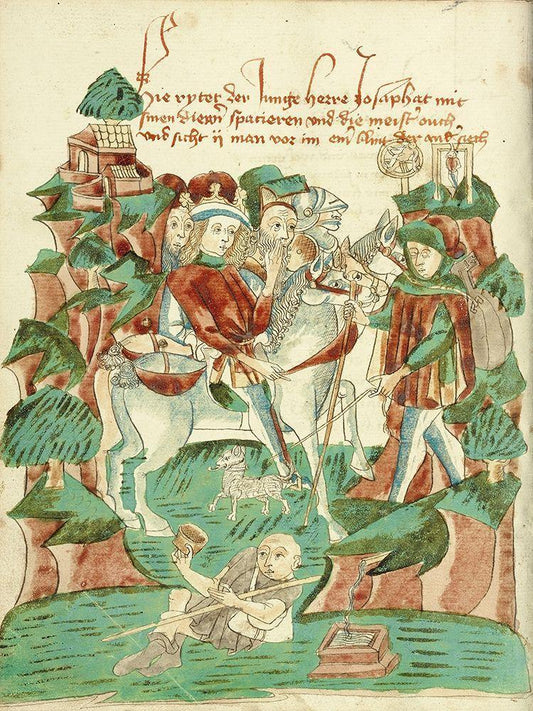 Hie rytet der Junge herre Josaphat mit
sinen diern spacieren vnd die meist ouch
vnd sicht ij man vor im ein der and